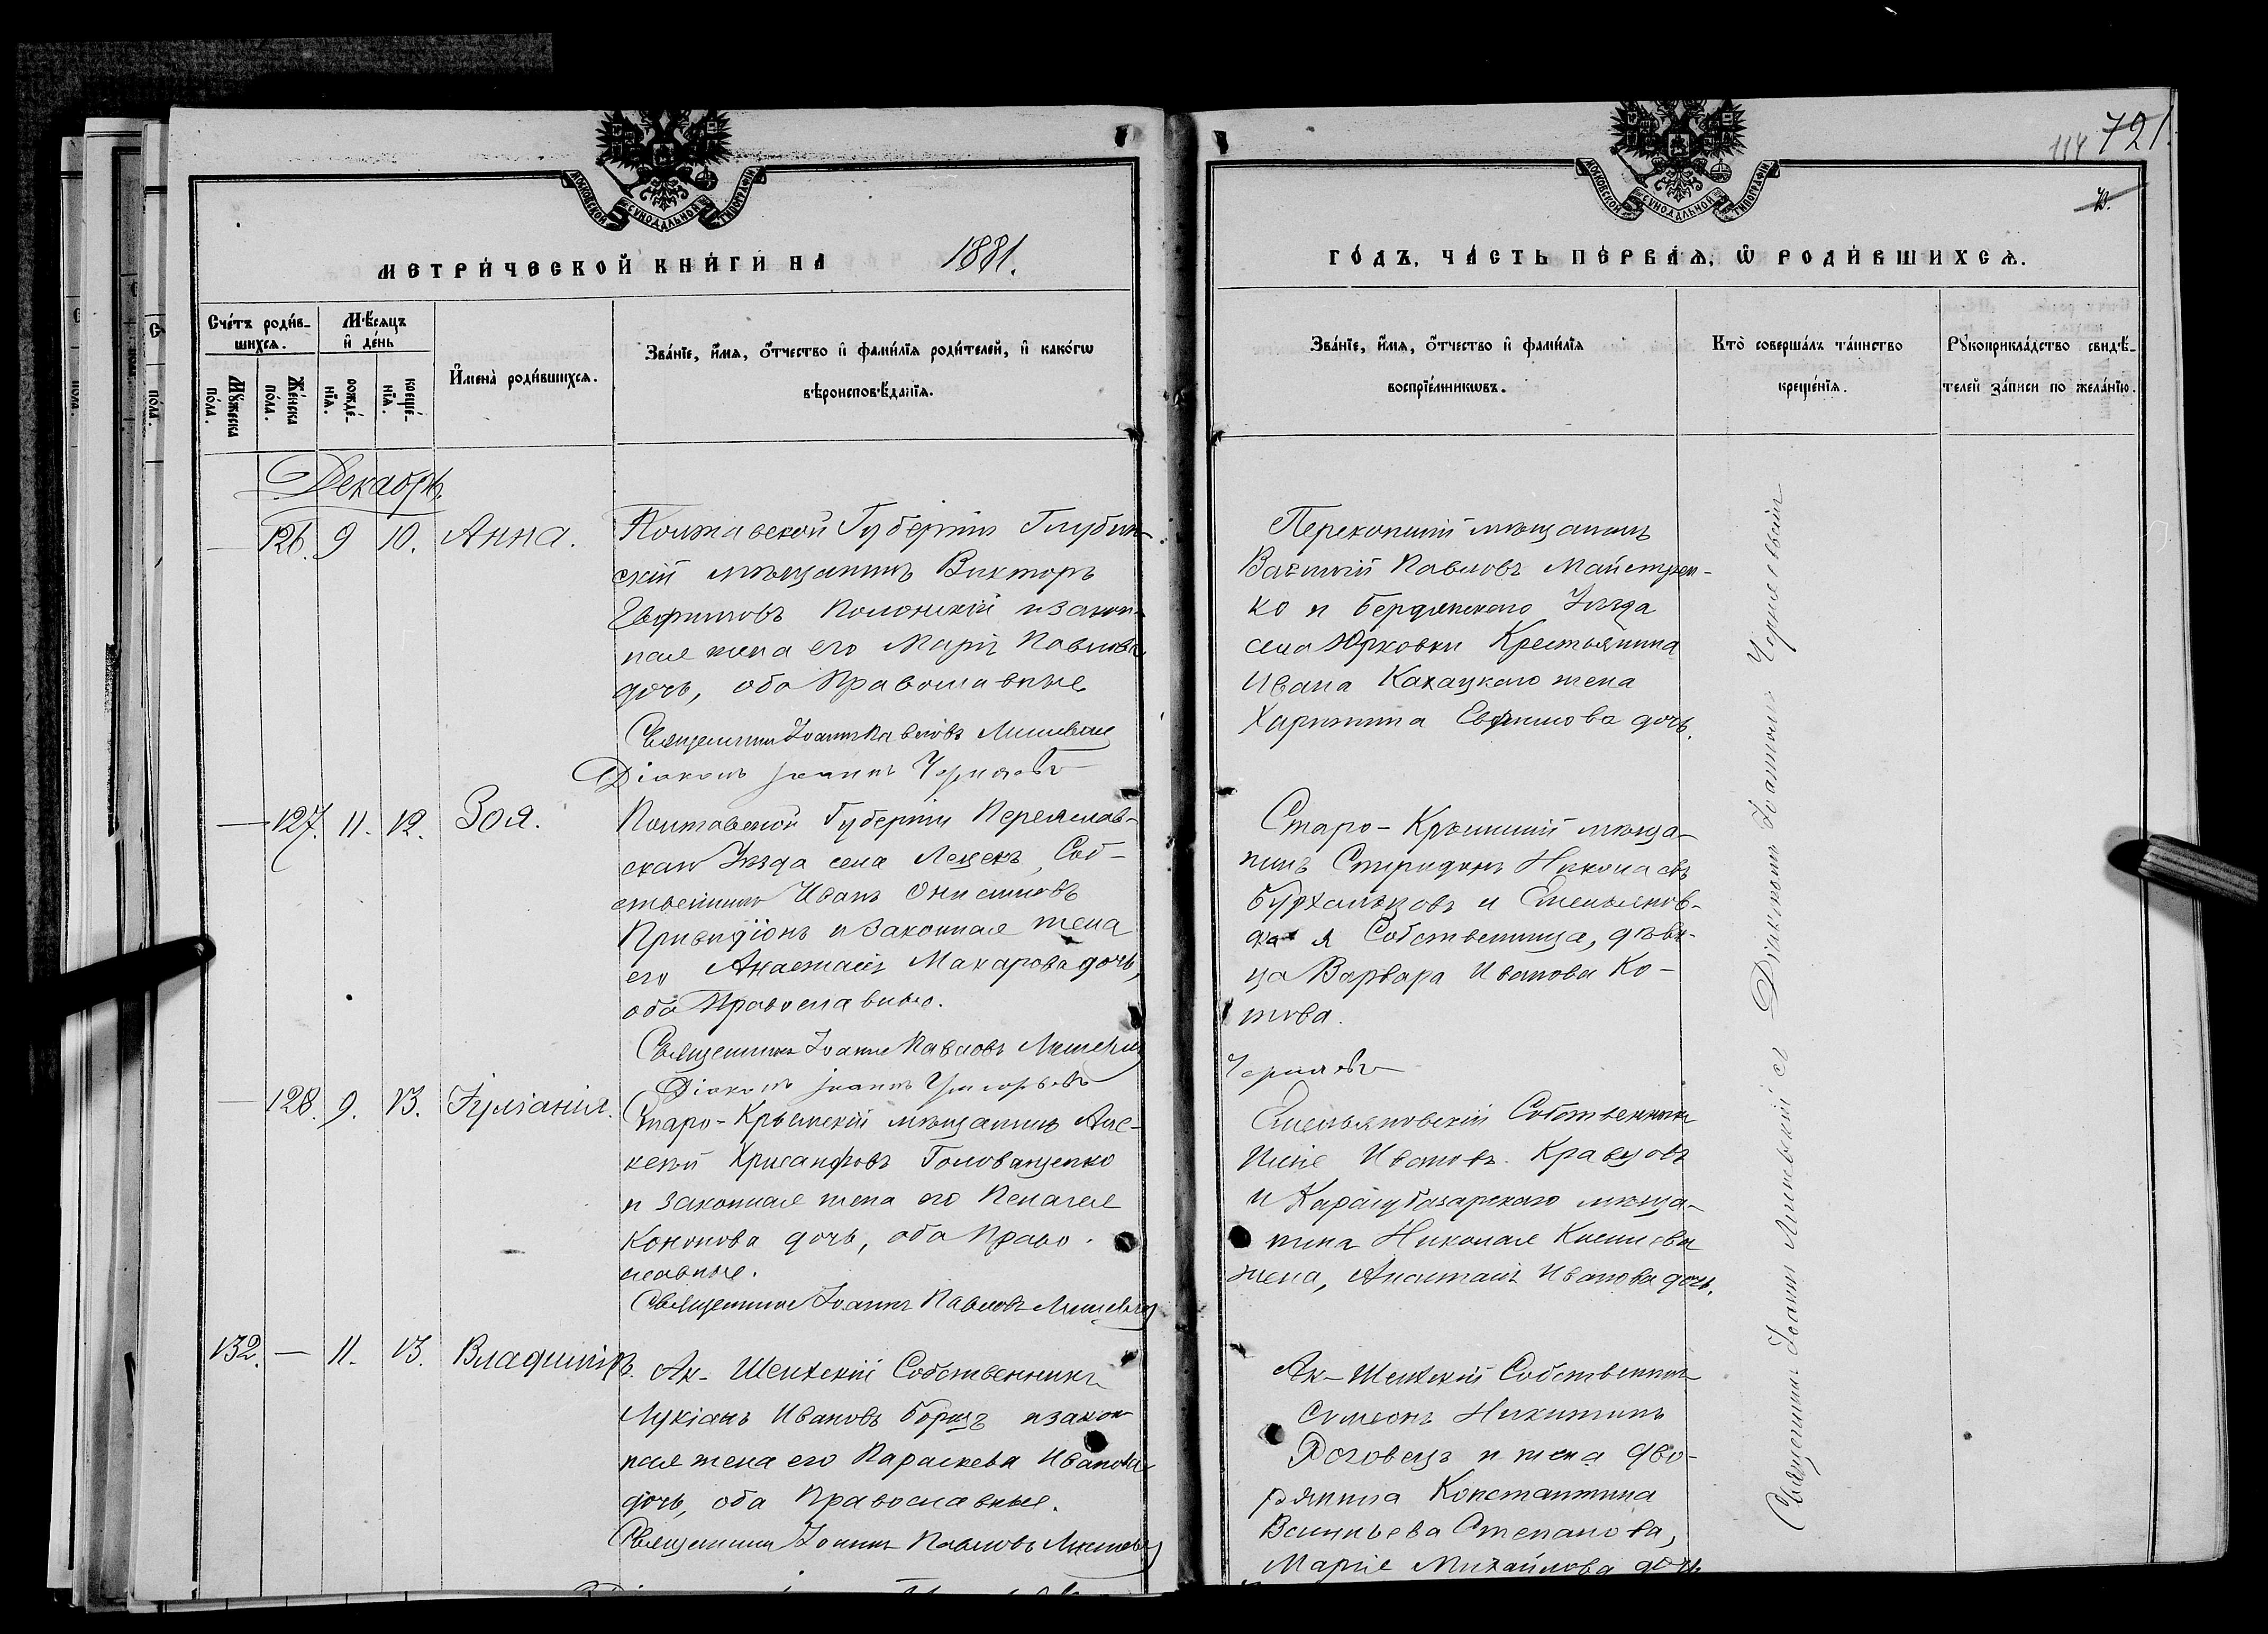 МОСКОВСКОЙ СѴНОДАЛЬНОЙ ТИПОГРАФІИ
МЕТРИ́ЧЕСКОЙ КНИ́ГИ НА 1881.
Сче́тъ роди́в-
шихсѧ.
Мꙋ́жеска
по́ла.
Же́нска
по́ла.
Мѣ́сѧцъ
и҆ де́нь
рожде́-
нїѧ.
креще́-
нїѧ.
И҆мена̀ роди́вшихсѧ.
Зва́нїе, и҆́мѧ, ѻ҆́тчество и҆ фами́лїѧ роди́телей, и҆ како́гѡ
вѣроисповѣ́данїѧ.
Декабрь
— 126. 9 10. Анна.
Полтавской Губерніи Глубин-
скій мѣщанинъ Викторъ
Евфимовъ Полонскій и закон-
ная жена его Марія Павлова
дочь, оба Православные
Священникъ Іоаннъ Павловъ
Діаконъ Іоаннъ
— 127. 11. 12. Зоя.
Полтавской Губерніи Переяслав-
скаго Уѣзда села Лецекъ, Соб-
ственникъ Иванъ Онисимовъ
и законная жена
его Анастасія Макарова дочь,
оба Православные.
Священникъ Іоаннъ Павловъ
Діаконъ Іоаннъ
— 128. 9. 13. Іуліанія.
Старо-Крымскій мѣщанинъ Але-
ксѣй Хрисанфовъ Голованценко
и законная жена его Пелагея
Кононова дочь, оба Право-
славные.
Священникъ Іоаннъ Павловъ
132. — 11. 13. Владиміръ.
Ак-Шеихскій Собственникъ
Лукіанъ Ивановъ Борщъ и закон
ная жена его Параскева Иванова
дочь, оба Православные.
Священникъ Іоаннъ Павловъ
114 721.
МОСКОВСКОЙ СѴНОДАЛЬНОЙ ТИПОГРАФІИ
ГО́ДЪ, ЧА́СТЬ ПЕ́РВАѦ, Ѡ҆ РОДИ́ВШИХСѦ.
Зва́нїе, и҆́мѧ, ѻ҆́тчество и҆ фами́лїѧ
воспрїе́мникѡвъ.
Кто̀ соверша́лъ та́инство
креще́нїѧ.
Рꙋкоприкла́дство свидѣ́-
телей за́писи по жела́нїю.
Перекопскій мѣщанинъ
Василій Павловъ Майстрен-
ко и Бердянскаго Уѣзда
села Юрковки Крестьянина
Ивана Кахацкаго жена
Харитина Евфимова дочь.
Старо-Крымскій мѣща-
нинъ Спиридонъ Николаевъ
и Емельянов-
ская Собственница, дѣви-
ца Варвара Иванова Ко-
това.
Емельяновскій Собственникъ
Илія Ивановъ Кравцовъ
и Карасубазарскаго мѣща-
нина Николая
жена, Анастасія Иванова дочь.
Ак-Шеихскій Собственникъ
Симеонъ Никитинъ
Роговецъ и жена дво-
рянина Константина
Васильева Степанова,
Марія Михайлова дочь
Священникъ Іоаннъ и Діаконъ Іоаннъ